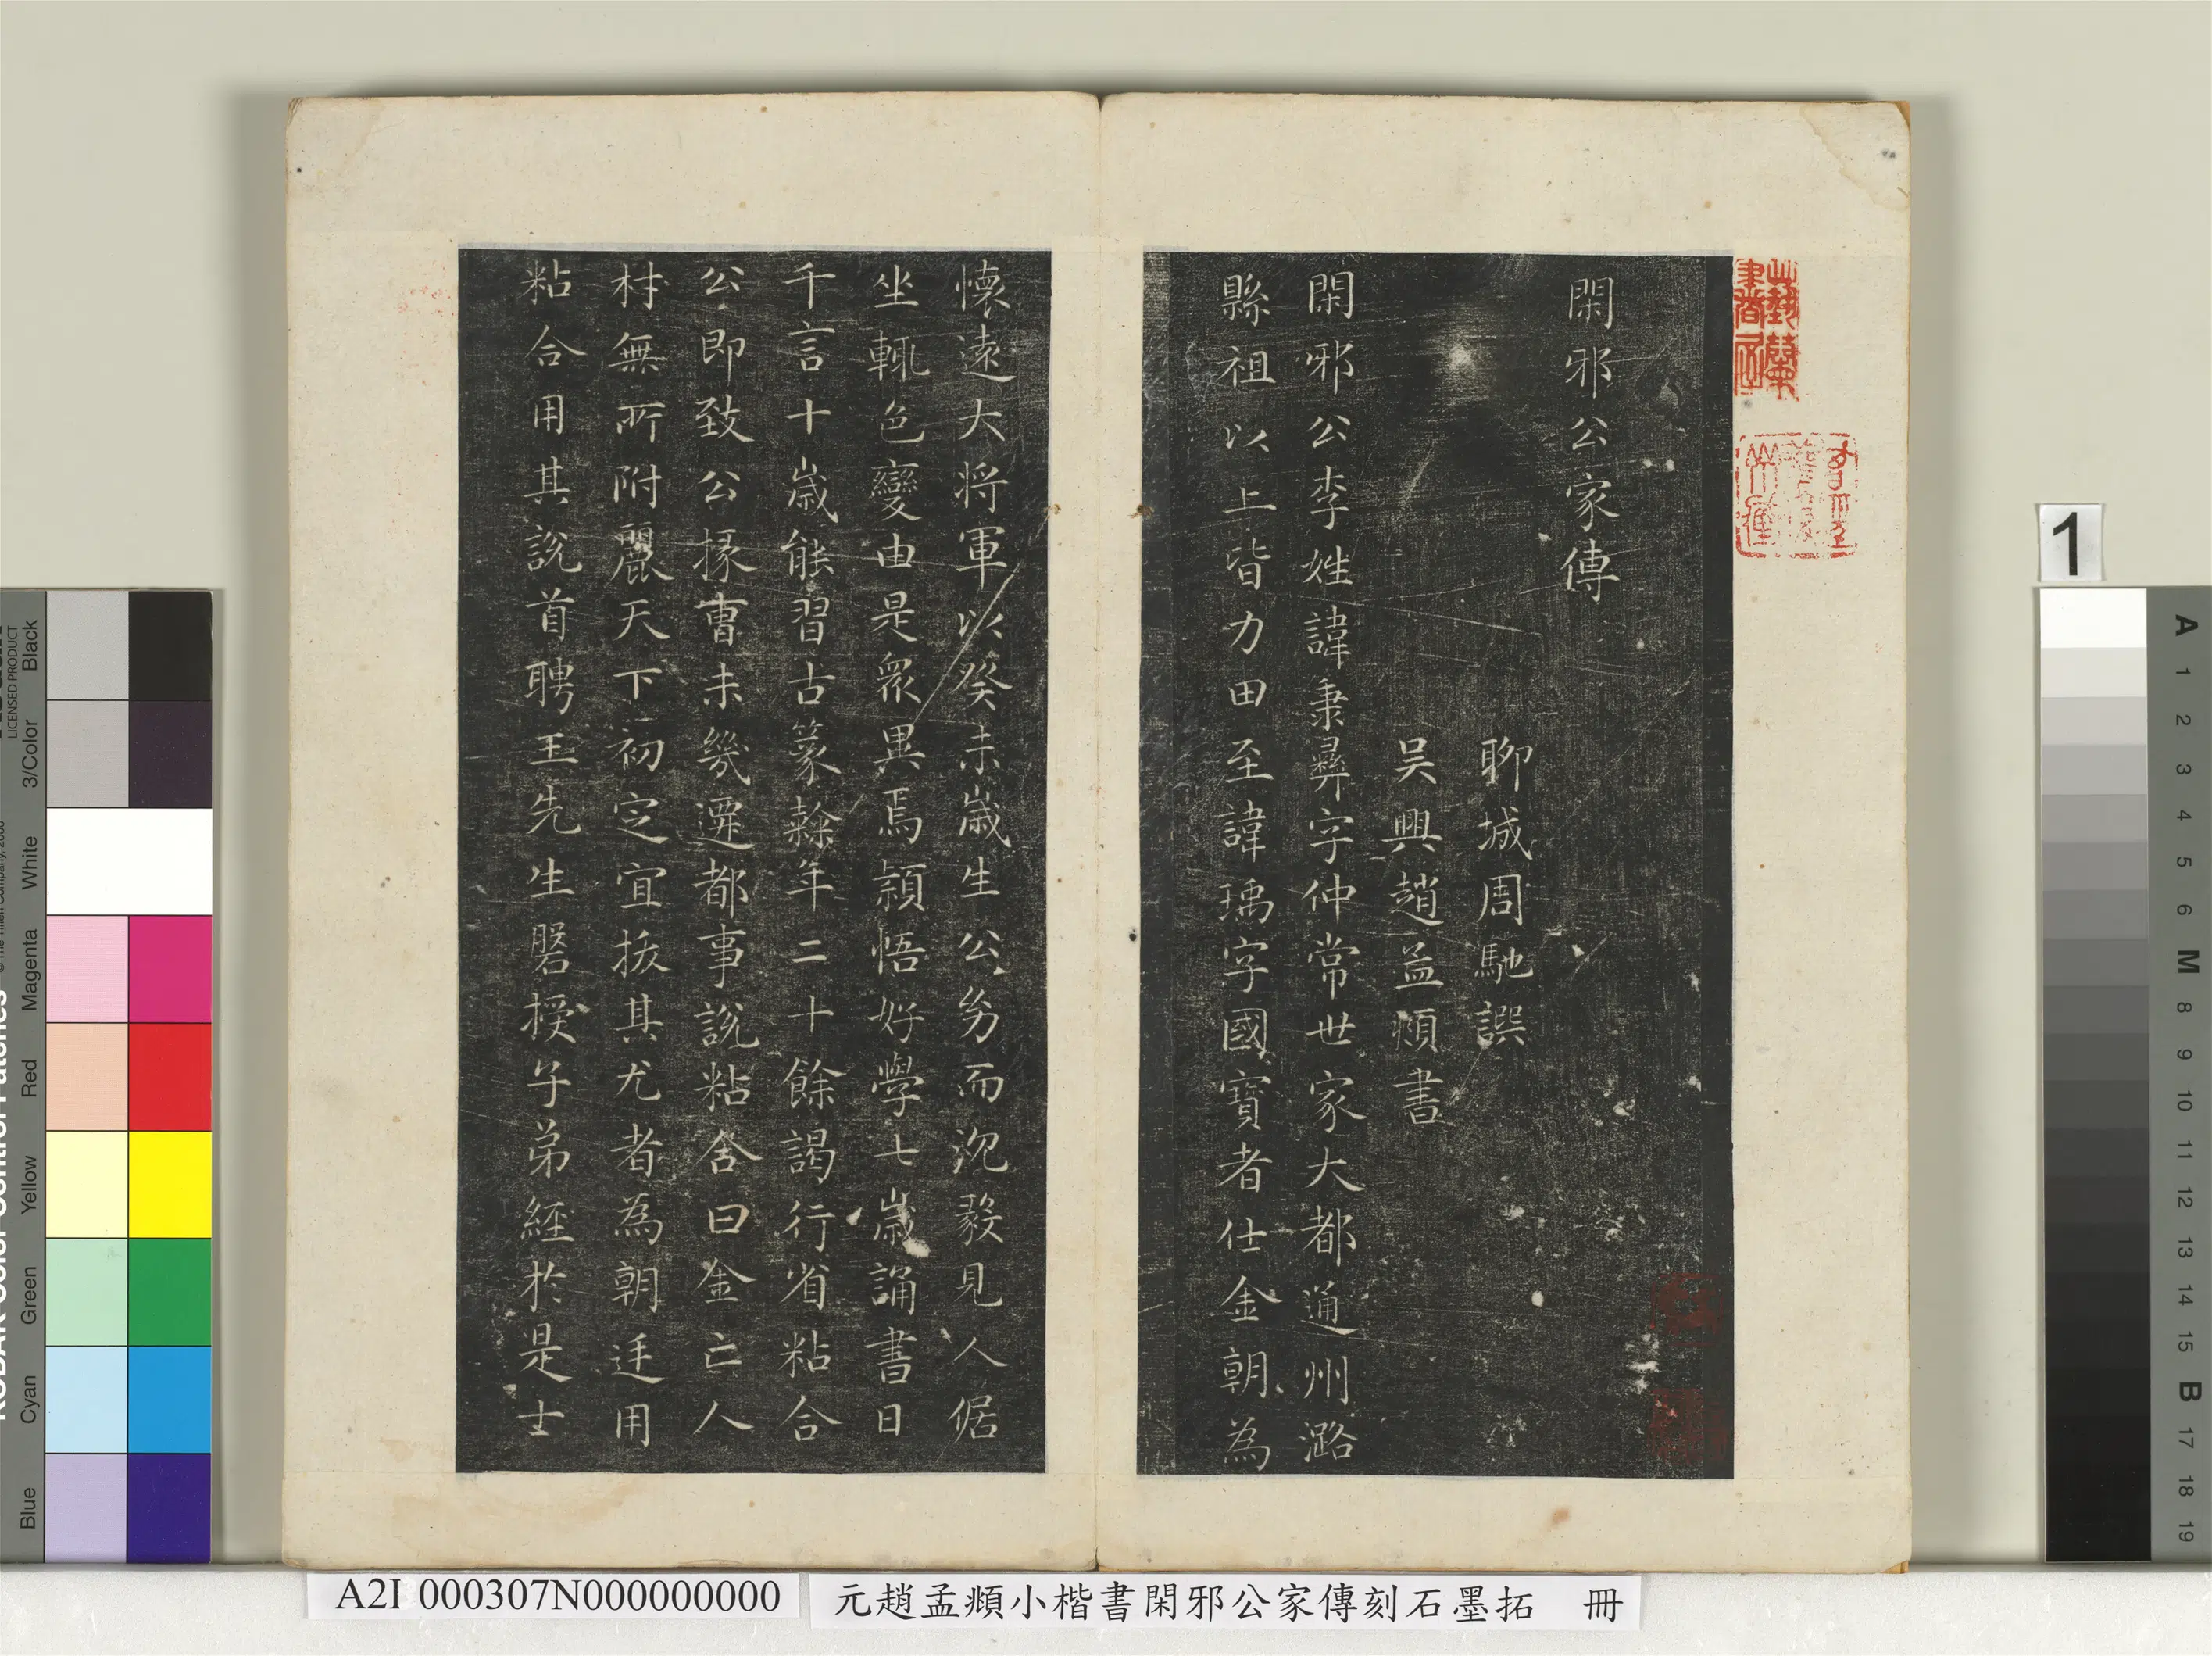 閑邪公家傳
聊城周馳譔
吴興趙孟頫書
閑邪公李姓諱秉彝字仲常世家大都通州潞
縣祖以上皆力田至諱瑀字國寶者仕金朝為
懷遠大將軍以癸未歲生公㓜而沉毅見人倨
坐輒色變由是衆異焉穎悟好學七歲誦書日
千言十歲能習古篆隸年二十餘謁行省粘合
公即致公掾曺未幾遷都事說粘合曰金亡人
材無所附麗天下初定宜拔其尤者為朝廷用
粘合用其說首聘王先生磐授子弟經於是士
A2I 000307N000000000
元趙孟頫小楷書閑邪公家傳刻石墨拓 冊
1
LICENSED PRODUCT
Black
3/Color
White
Magenta
Red
Yellow
Green
Cyan
Blue
A
1
2
3
4
5
6
M
8
9
10
11
12
13
14
15
B
17
18
19